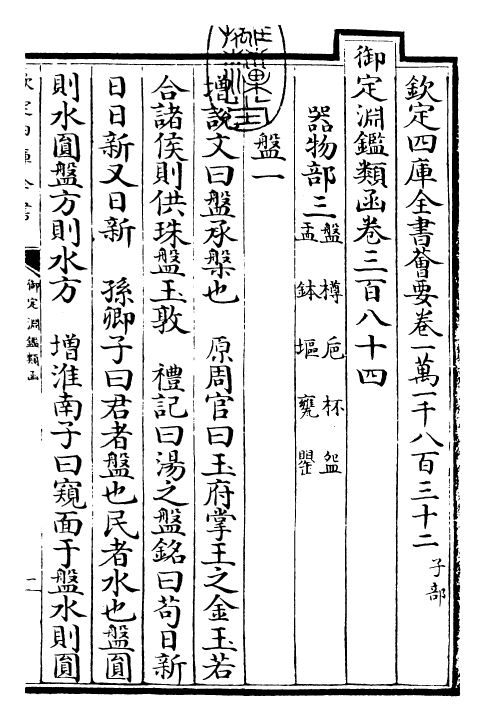 欽定四庫全書薈要卷一萬一千八百三十二 子部
御定淵鑑類函卷三百八十四
器物部三 盤 樽 巵 杯 盌
盂 鉢 堀 甕 罌
盤一
增說文曰盤承槃也 原周官曰玉府掌王之金玉若
合諸侯則供珠盤玉敦 禮記曰湯之盤銘曰苟日新
日日新又日新 孫卿子曰君者盤也民者水也盤圓
則水圓盤方則水方 增淮南子曰窺面于盤水則圓
欽定四庫全書
御定淵鑑類函